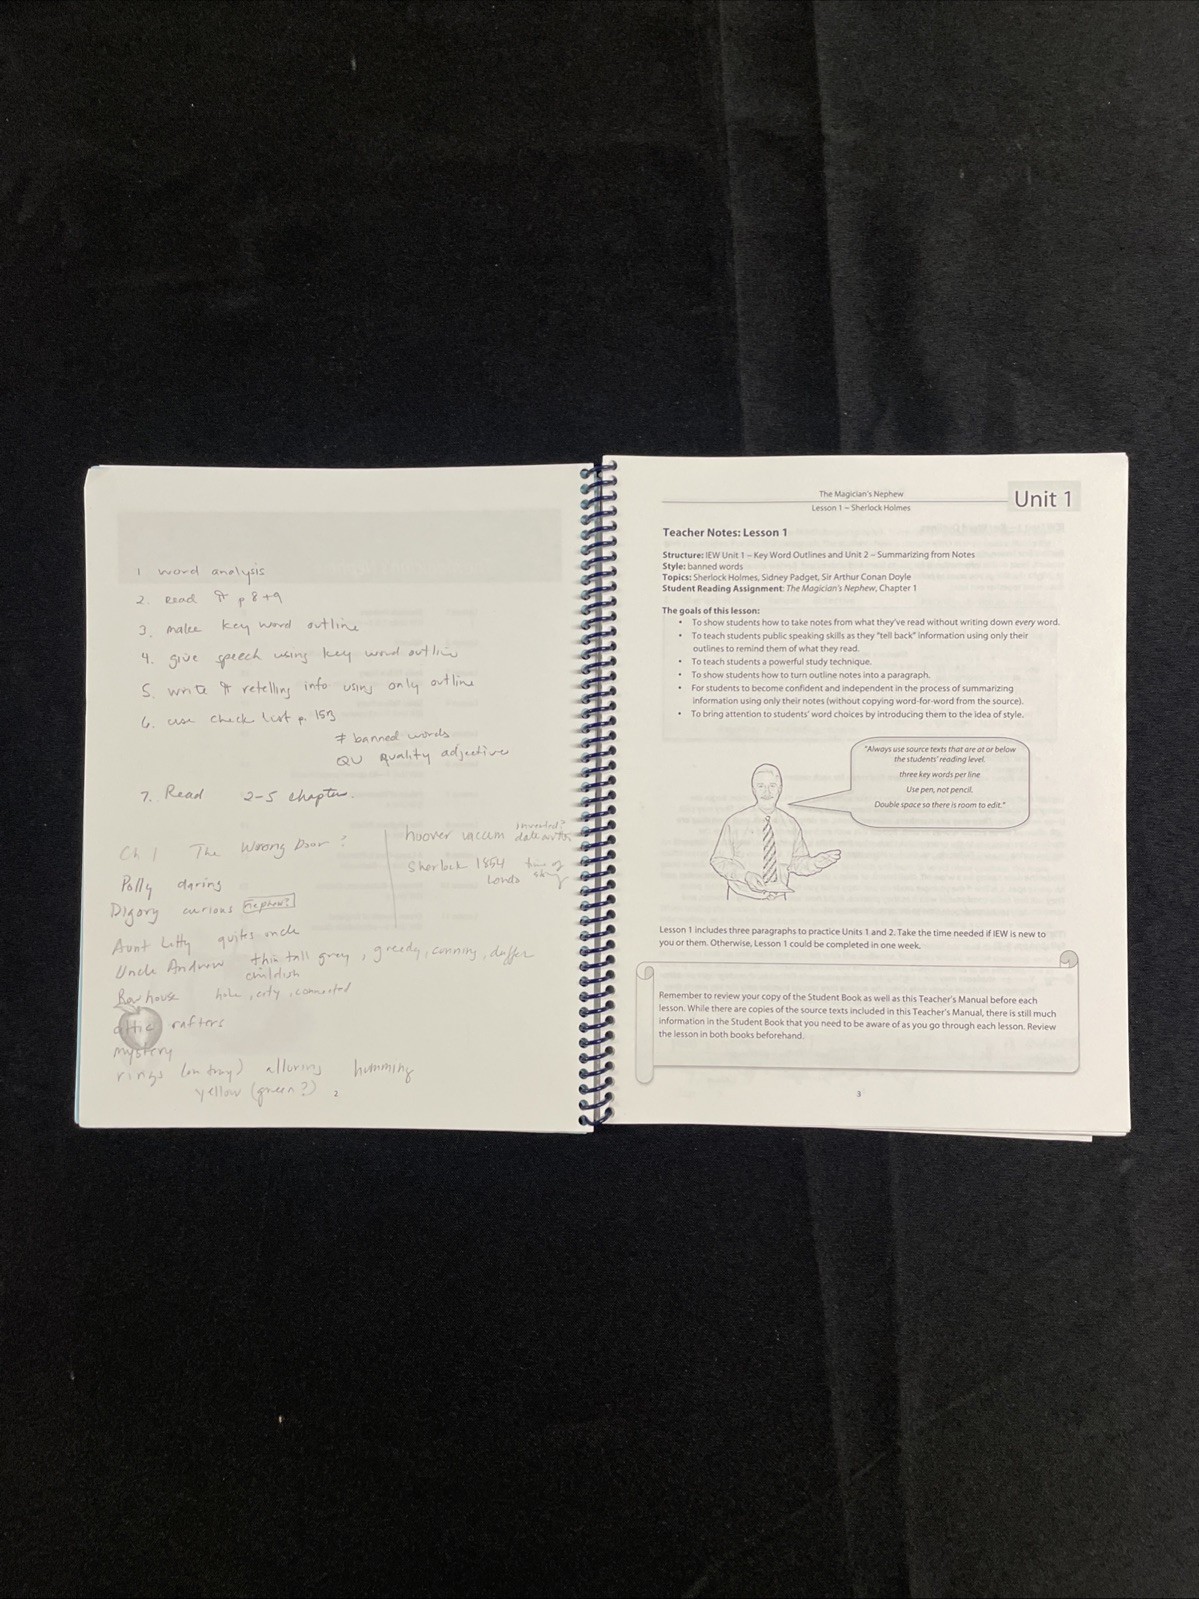 1 word analysis
2. Read ¶ p 8+9
3. make key word outline
4. give speech using key word outline
5. write ¶ retelling info using only outline
6. use check list p. 153
≠ banned words
QU quality adjectives
7. Read 2-5 chapters.
Ch 1 The Wrong Door?
Polly daring
Digory curious nephew?
Aunt Letty
Uncle Andrew thin tall grey, greedy, cunning, duffer
childish
Row house hole, city, connected
attic rafters
mystery
rings (on tray) alluring humming
yellow (green?)
2
hoover vacuum invented?
Sherlock 1854 time of
London story
The Magician's Nephew
Lesson 1 – Sherlock Holmes
Unit 1
Teacher Notes: Lesson 1
Structure: IEW Unit 1 – Key Word Outlines and Unit 2 – Summarizing from Notes
Style: banned words
Topics: Sherlock Holmes, Sidney Padget, Sir Arthur Conan Doyle
Student Reading Assignment: The Magician's Nephew, Chapter 1
The goals of this lesson:
• To show students how to take notes from what they've read without writing down every word.
• To teach students public speaking skills as they "tell back" information using only their
outlines to remind them of what they read.
• To teach students a powerful study technique.
• To show students how to turn outline notes into a paragraph.
• For students to become confident and independent in the process of summarizing
information using only their notes (without copying word-for-word from the source).
• To bring attention to students' word choices by introducing them to the idea of style.
"Always use source texts that are at or below
the students' reading level.
three key words per line
Use pen, not pencil.
Double space so there is room to edit."
Lesson 1 includes three paragraphs to practice Units 1 and 2. Take the time needed if IEW is new to
you or them. Otherwise, Lesson 1 could be completed in one week.
Remember to review your copy of the Student Book as well as this Teacher's Manual before each
lesson. While there are copies of the source texts included in this Teacher's Manual, there is still much
information in the Student Book that you need to be aware of as you go through each lesson. Review
the lesson in both books beforehand.
3